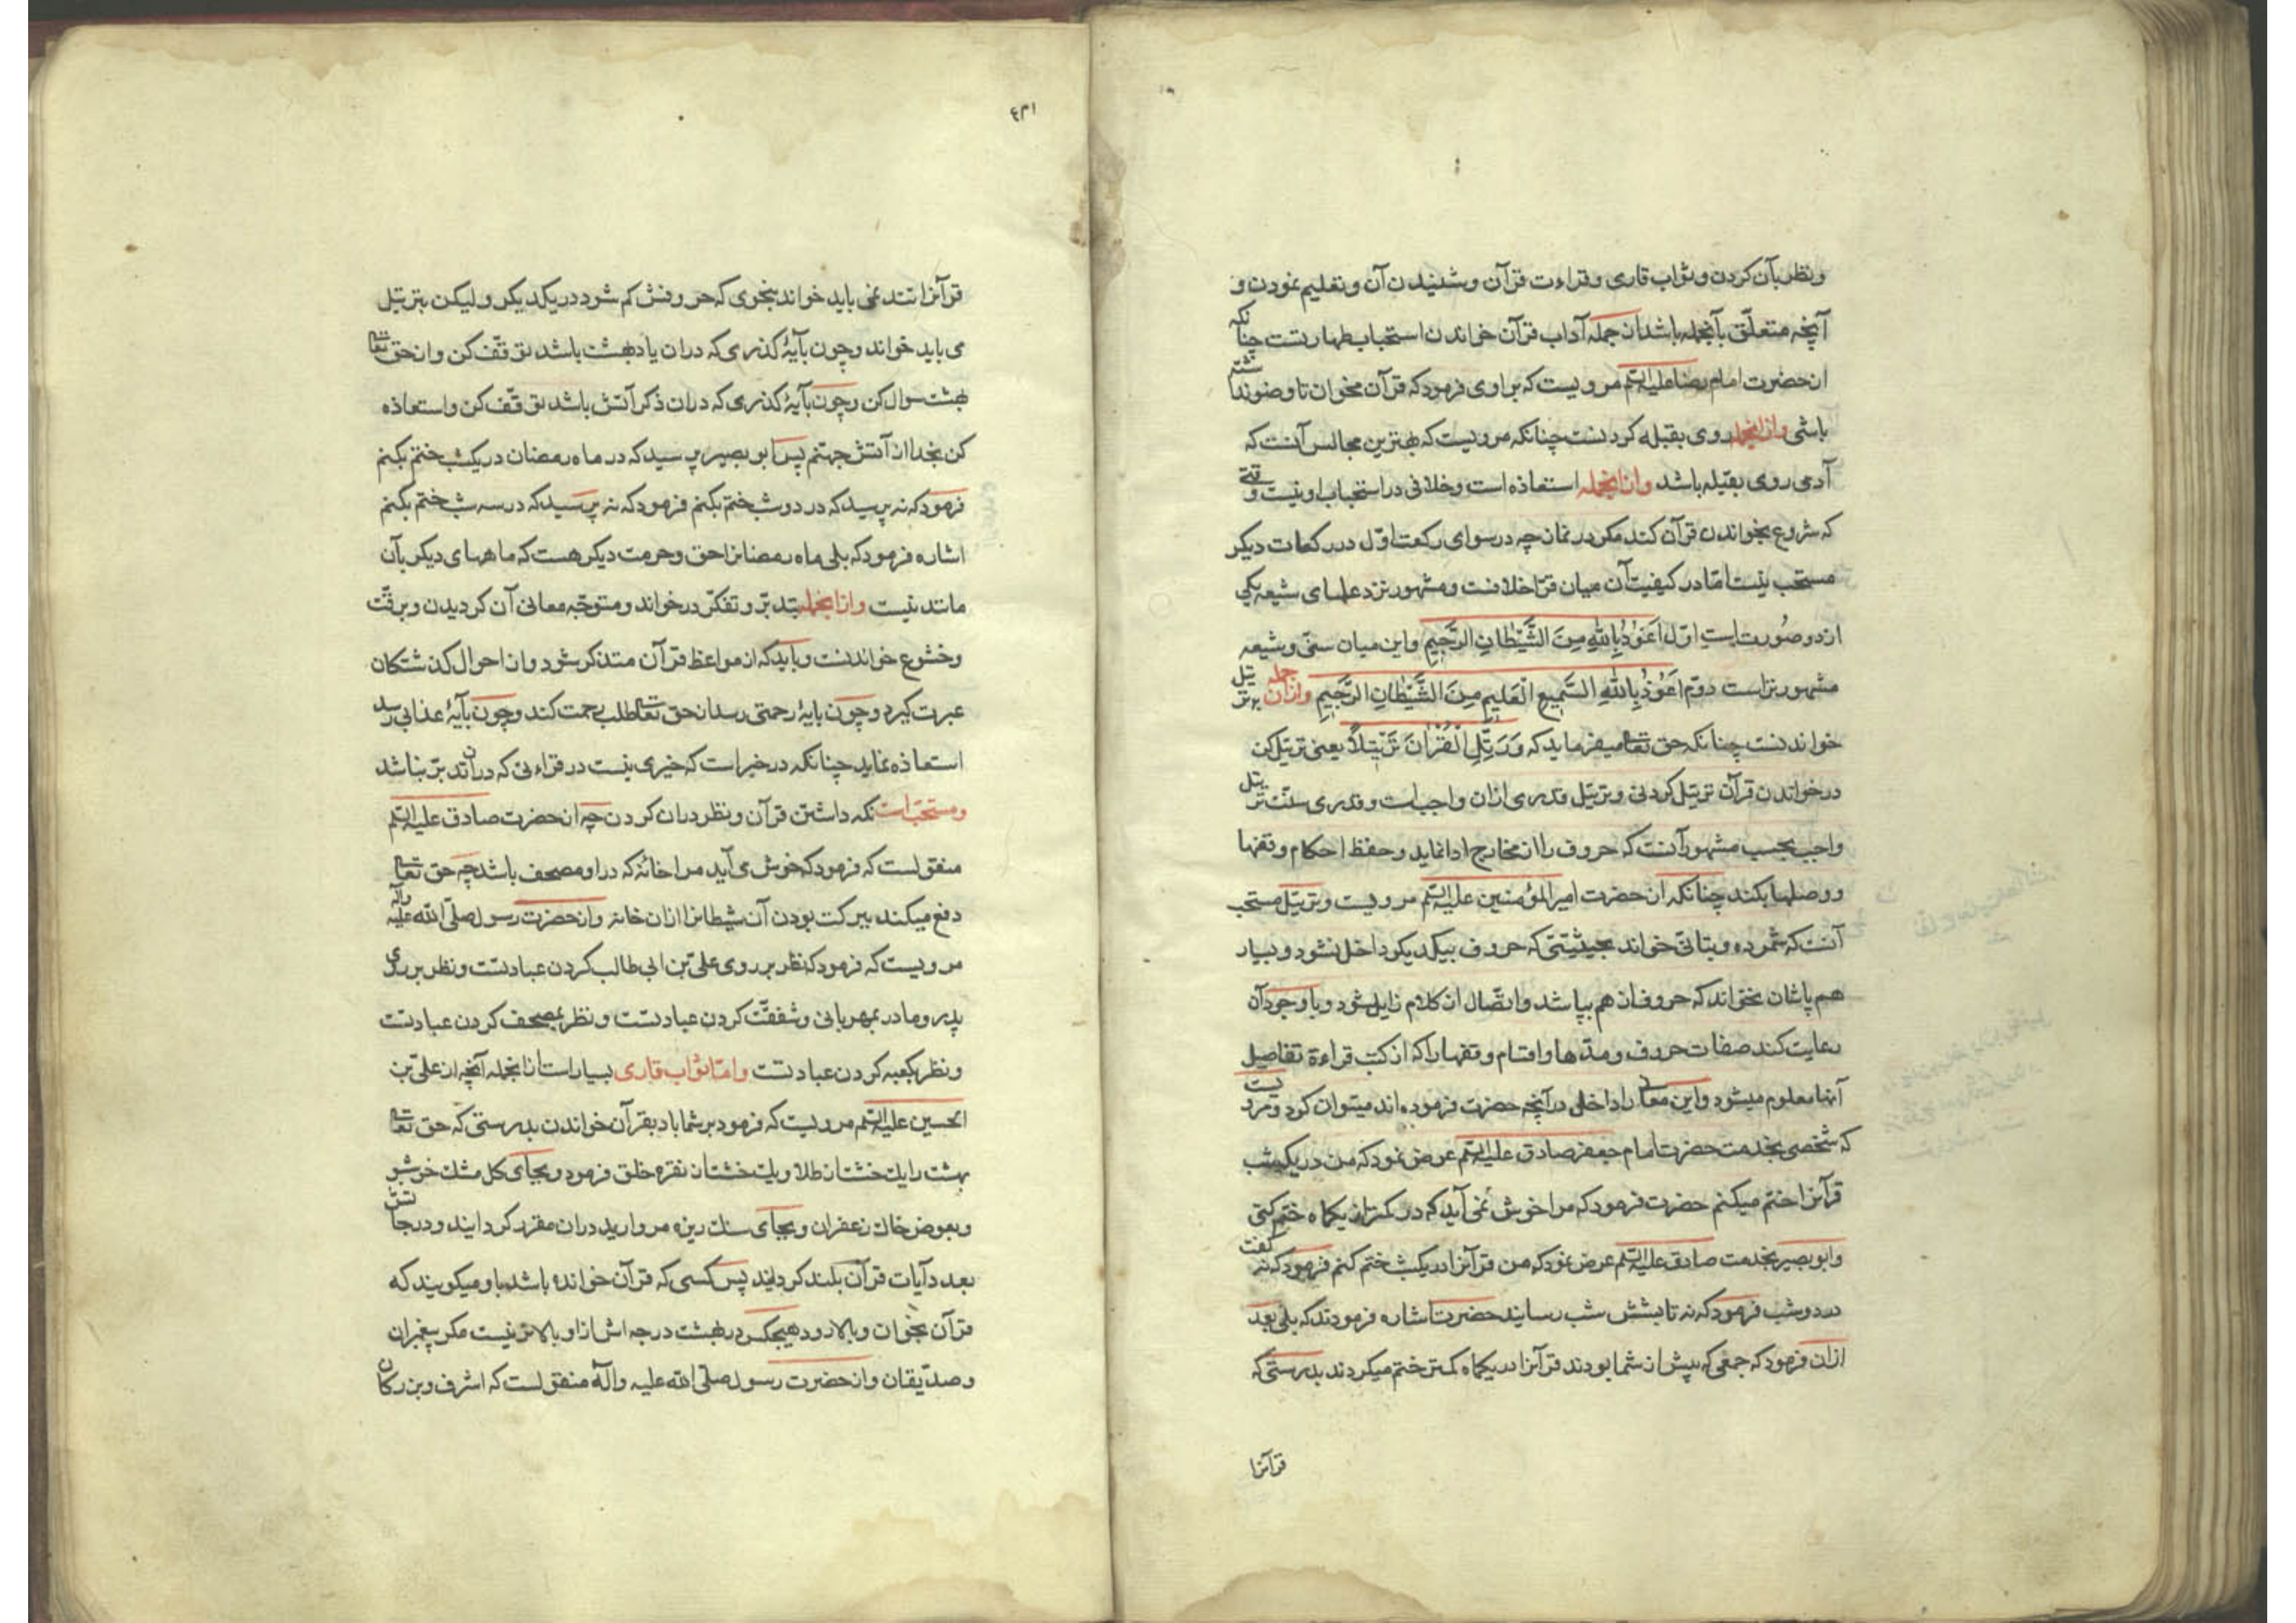 ونظر بآن کردن و ثواب قاری و قراءت قرآن و شنیدن آن و تعلیم نمودن و
آنچه متعلّق بآنجمله باشد از جمله آداب قرآن خواندن استحباب طهارتست چنانکه
از حضرت امام رضا علیه السلم مرویست که براوی فرمود که قرآن مخوان تا وضو نداشته
باشی وازانجمله روی بقبله کردنست چنانکه مرویست که بهترین مجالس آنست که
آدمی روی بقبله باشد وازانجمله استعاذه است و خلافی در استحباب او نیست وقتی
که شروع بخواندن قرآن کند مکر در نماز چه در سوای رکعت اوّل در رکعات دیکر
مستحب نیست امّا در کیفیت آن میان قرّا خلافست و مشهور نزد علمای شیعه یکی
از دو صورت است اوّل اَعوُذُ بِاللهِ مِنَ الشَّیْطانِ الرَّجیمِ واین میان سنّی و شیعه
مشهورتراست دوّم اَعوُذُ بِاللهِ السَّمیعِ الْعَلیمِ مِنَ الشَّیْطانِ الرَّجیمِ وازان جمله بترتیل
خواندنست چنانکه حق تعالی میفرماید که وَرَتِّلِ الْقُرْانَ تَرْتیلاً یعنی ترتیل کن
در خواندن قرآن ترتیل کردنی و ترتیل قدری ازان واجبست و قدری سنّت ترتیل
واجب بحسب مشهور آنست که حروف را از مخارج ادا نماید و حفظ احکام وقفها
ووصلها بکند چنانکه از حضرت امیر المؤمنین علیه السلم مرویست و ترتیل مستحب
آنست که شمرده و بتانّی خواند بحیثیتی که حروف بیکدیکر داخل نشود و بسیار
هم پاشان نخواند که حروف از هم بپاشد و اتّصال از کلام زایل شود و با وجود آن
رعایت کند صفات حروف و مدّها و اقسام وقفها را که از کتب قراءة تفاصیل
آنها معلوم میشود واین معانی را داخل در آنچه حضرت فرموده اند میتوان کرد ومرویست
که شخصی بخدمت حضرت امام جعفر صادق علیه السلم عرض نمود که من در یکشب
قرآنرا ختم میکنم حضرت فرمود که مرا خوش نمی آید که در کمتر از یکماه ختم کنی
وابوبصیر بخدمت صادق علیه السلم عرض نمود که من قرآنرا در یکشب ختم کنم فرمود که نه کفت
در دوشب فرمود که نه تا بشش شب رسانید حضرت اشاره فرمودند که بلی بعد
ازان فرمود که جمعی که پیش از شما بودند قرآنرا در یکماه کمتر ختم میکردند بدرستی که
قرآنرا
قرآنرا تند نمی باید خواند بنحوی که حروفش کم شود در یکدیکر و لیکن بترتیل
می باید خواند و چون بآیهٔ کذری که دران یاد بهشت باشد توقّف کن و از حق تعالی
بهشت سوال کن و چون بآیهٔ کذری که دران ذکر آتش باشد توقّف کن و استعاذه
کن بخدا از آتش جهنّم پس ابو بصیر پرسید که در ماه رمضان در یکشب ختم بکنم
فرمود که نه پرسید که در دو شب ختم بکنم فرمود که نه پرسید که در سه شب ختم بکنم
اشاره فرمود که بلی ماه رمضانرا حق و حرمت دیکر هست که ماههای دیکر بآن
مانند نیست وازانجمله بتدبّر و تفکّر در خواند و متوجّه معانی آن کردیدن و برقّت
و خشوع خواندنست و باید که از مواعظ قرآن متذکر شود و از احوال کذشتکان
عبرت کیرد و چون بایهٔ رحمتی رسد از حق تعالی طلب رحمت کند و چون بآیهٔ عذابی رسد
استعاذه نماید چنانکه در خبر است که خیری نیست در قراءتی که دران تدبّر نباشد
ومستحب است نکه داشتن قرآن و نظر دران کردن چه از حضرت صادق علیه السلم
منقولست که فرمود که خوش می آید مرا خانهٔ که در او مصحف باشد چه حق تعالی
دفع میکند ببرکت بودن آن شیطانرا ازان خانه و از حضرت رسول صلّی الله علیه وآله
مرویست که فرمود که نظر بر روی علی بن ابی طالب کردن عبادتست و نظر بر روی
پدر و مادر بمهربانی و شفقت کردن عبادتست و نظر بمصحف کردن عبادتست
و نظر بکعبه کردن عبادتست وامّا ثواب قاری بسیار است ازانجمله آنچه از علی بن
الحسین علیه السلم مرویست که فرمود بر شما باد بقرآن خواندن بدرستی که حق تعالی
بهشت را یک خشت از طلا و یک خشت از نقره خلق فرمود و بجای کل مشک خوشبو
و بعوض خاک زعفران و بجای سنک ریزه مروارید دران مقرر کردانید و درجاتش
بعدد آیات قرآن بلند کردانید پس کسی که قرآن خوانده باشد باو میکویند که
قرآن بخوان و بالا رو و هیچکس در بهشت درجه اش از او بالاتر نیست مکر پیغمبران
و صدّیقان و از حضرت رسول صلّی الله علیه وآله منقولست که اشرف و بزرکان